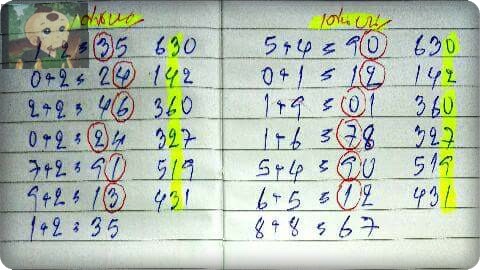 1+2=35 630
0+2=24 142
2+2=46 360
0+2=24 327
7+2=91 519
9+2=13 431
1+2=35
5+4=90 630
0+1=12 142
1+9=01 360
1+6=78 327
5+4=90 519
6+5=12 431
8+8=67